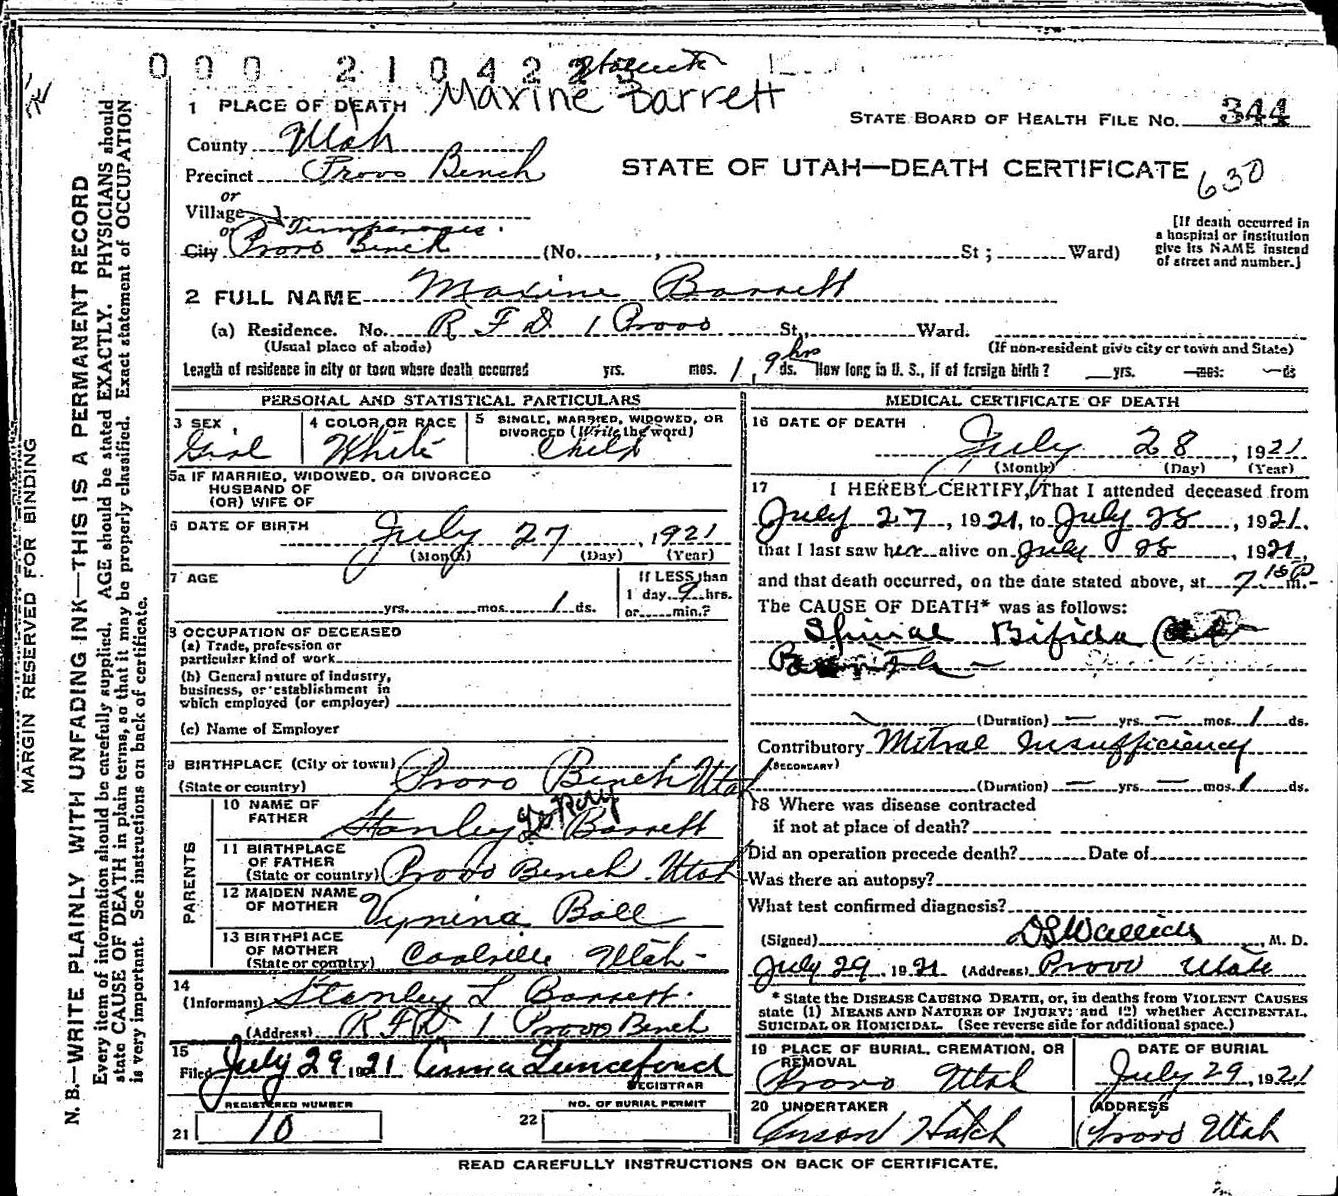 000 210422
Maxine Barrett
1 PLACE OF DEATH
STATE BOARD OF HEALTH FILE NO. 344
County Utah
Precinct Provo Bench
STATE OF UTAH—DEATH CERTIFICATE
630
or
Village
or Timpanogos
City Provo Bench (No. , St ; Ward)
[If death occurred in
a hospital or institution
give its NAME instead
of street and number.]
2 FULL NAME Maxine Barrett
(a) Residence. No. R F D 1 Provo St., Ward.
(Usual place of abode)
(If non-resident give city or town and State)
Length of residence in city or town where death occurred yrs. mos. 1, 9 hrs ds. How long in U. S., if of foreign birth? yrs. mos. ds
PERSONAL AND STATISTICAL PARTICULARS
3 SEX Girl
4 COLOR OR RACE White
5 SINGLE, MARRIED, WIDOWED, OR
DIVORCED (Write the word)
Child
5a IF MARRIED, WIDOWED, OR DIVORCED
HUSBAND OF
(OR) WIFE OF
6 DATE OF BIRTH July 27, 1921
(Month) (Day) (Year)
7 AGE yrs. mos. 1 ds.
If LESS than
1 day 9 hrs.
or min.?
8 OCCUPATION OF DECEASED
(a) Trade, profession or
particular kind of work
(b) General nature of industry,
business, or establishment in
which employed (or employer)
(c) Name of Employer
9 BIRTHPLACE (City or town)
(State or country) Provo Bench Utah
PARENTS
10 NAME OF
FATHER Stanley LeRoy Barrett
11 BIRTHPLACE
OF FATHER
(State or country) Provo Bench Utah
12 MAIDEN NAME
OF MOTHER Vynina Ball
13 BIRTHPLACE
OF MOTHER
(State or country) Coalville Utah
14
(Informant) Stanley L Barrett
(Address) R F D 1 Provo Bench
15
Filed July 29 1921 Anna Lunceford
REGISTRAR
REGISTERED NUMBER
21 10
NO. OF BURIAL PERMIT
22
MEDICAL CERTIFICATE OF DEATH
16 DATE OF DEATH
July 28, 1921
(Month) (Day) (Year)
17 I HEREBY CERTIFY, That I attended deceased from
July 27, 1921, to July 28, 1921.
that I last saw her alive on July 28, 1921,
and that death occurred, on the date stated above, at 7 15 P m.
The CAUSE OF DEATH* was as follows:
Spinal Bifida
(Duration) yrs. mos. 1 ds.
Contributory Mitral Insufficiency
(SECONDARY)
(Duration) yrs. mos. 1 ds.
18 Where was disease contracted
if not at place of death?
Did an operation precede death? Date of
Was there an autopsy?
What test confirmed diagnosis?
(Signed) M. D.
July 29, 1921 (Address) Provo Utah
* State the DISEASE CAUSING DEATH, or, in deaths from VIOLENT CAUSES
state (1) MEANS AND NATURE OF INJURY; and (2) whether ACCIDENTAL,
SUICIDAL OR HOMICIDAL. (See reverse side for additional space.)
19 PLACE OF BURIAL, CREMATION, OR
REMOVAL
Provo Utah
DATE OF BURIAL
July 29, 1921
20 UNDERTAKER
Anson Hatch
ADDRESS
Provo Utah
READ CAREFULLY INSTRUCTIONS ON BACK OF CERTIFICATE.
MARGIN RESERVED FOR BINDING
N. B.—WRITE PLAINLY WITH UNFADING INK—THIS IS A PERMANENT RECORD
Every item of information should be carefully supplied. AGE should be stated EXACTLY. PHYSICIANS should
state CAUSE OF DEATH in plain terms, so that it may be properly classified. Exact statement of OCCUPATION
is very important. See instructions on back of certificate.